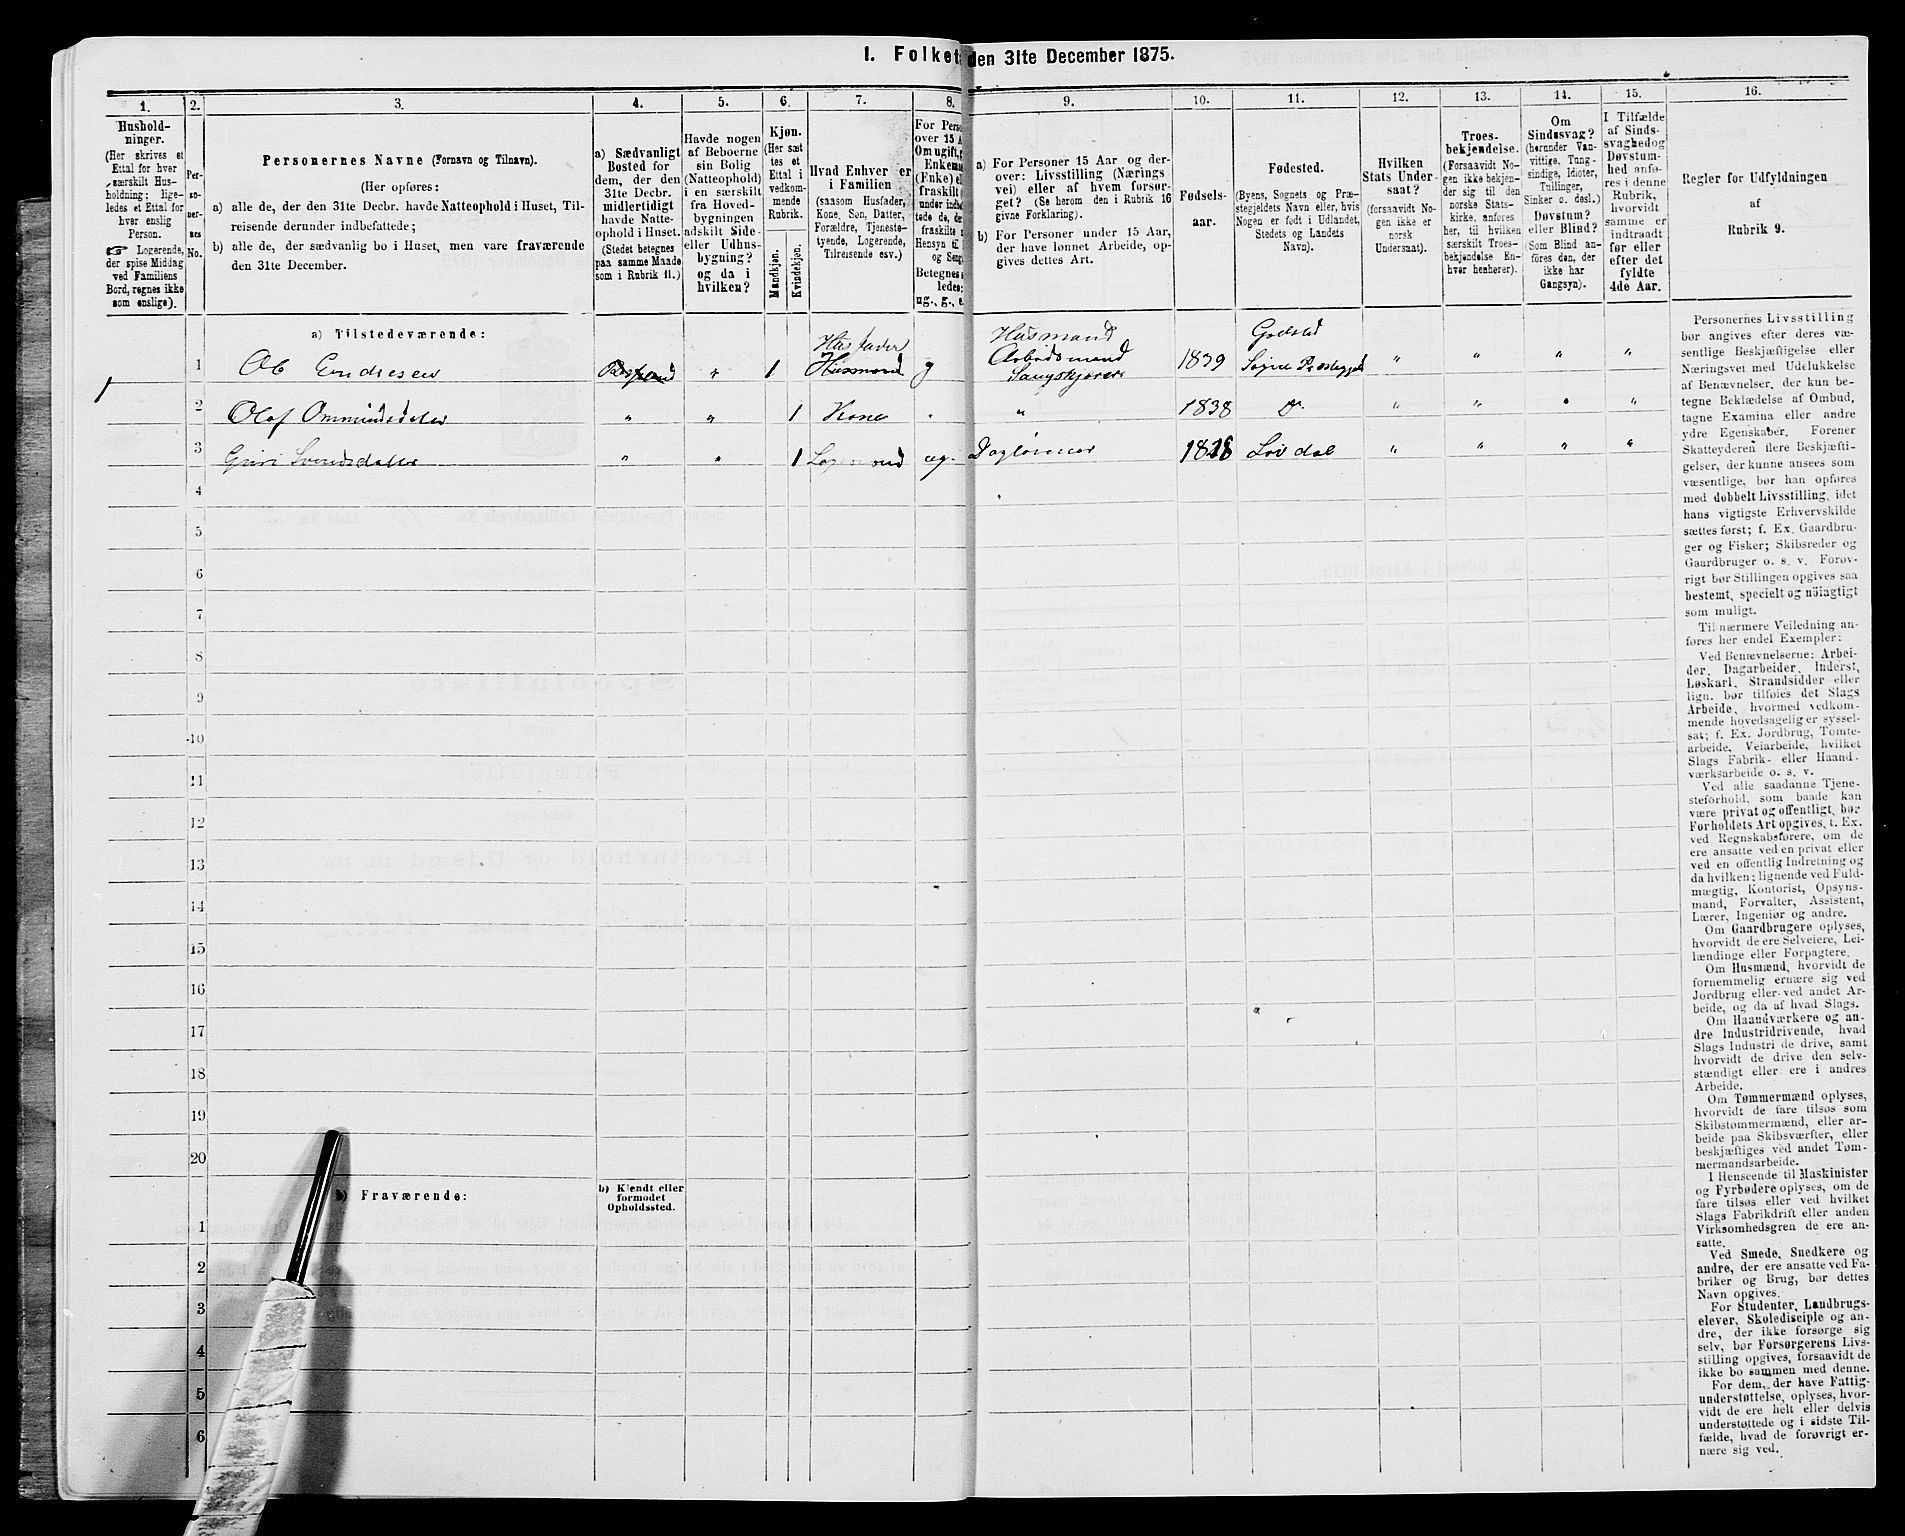 1. Folket
den 31te December 1875.
1.
2.
3.
4.
5.
6.
7.
8.
9.
10.
11.
12.
13.
14.
15.
16.
Hushold-
ninger.
(Her skrives et
Ettal for hver
særskilt Hus-
holdning; lige-
ledes et Ettal for
hver enslig
Person.
☞ Logerende,
der spise Middag
ved Familiens
Bord, regnes ikke
som enslige).
Per-
so-
ner-
nes
No.
Personernes Navne (Fornavn og Tilnavn).
(Her opføres:
a) alle de, der den 31te Decbr. havde Natteophold i Huset, Til-
reisende derunder indbefattede;
b) alle de, der sædvanlig bo i Huset, men vare fraværende
den 31te December.
a) Sædvanligt
Bosted for
dem, der den
31te Decbr.
midlertidigt
havde Natte-
ophold i Huset.
(Stedet betegnes
paa samme Maade
som i Rubrik 11.)
Havde nogen
af Beboerne
sin Bolig
(Natteophold)
i en særskilt
fra Hoved-
bygningen
adskilt Side-
eller Udhus-
bygning?
og da i
hvilken?
Kjøn.
(Her sæt
tes et
Ettal i
vedkom-
mende
Rubrik.
Mandkjøn.
Kvindekjøn.
Hvad Enhver er
i Familien
(saasom Husfader,
Kone, Søn, Datter,
Forældre, Tjeneste-
tyende, Logerende,
Tilreisende osv.)
For Perso
over 15 A
Om ugift, g
Enkema
(Enke) el
fraskilt
under indbe
tede de, de
fraskilte
Hensyn til
og Seng
Betegnes s
ledes:
ug., g., e.
a) For Personer 15 Aar og der-
over: Livsstilling (Nærings-
vei) eller af hvem forsør-
get? (Se herom den i Rubrik 16
givne Forklaring).
b) For Personer under 15 Aar,
der have lønnet Arbeide, op-
gives dettes Art.
Fødsels-
aar.
Fødested.
(Byens, Sognets og Præ-
stegjeldets Navn eller, hvis
Nogen er født i Udlandet,
Stedets og Landets
Navn).
Hvilken
Stats Under-
saat?
(forsaavidt No-
gen ikke er
norsk
Undersaat).
Troes-
bekjendelse.
(Forsaavidt No-
gen ikke bekjen-
der sig til den
norske Stats-
kirke, anføres
her, til hvilken
særskilt Troes-
bekjendelse En-
hver henhører).
Om
Sindssvag?
(herunder Van-
vittige, Tung-
sindige, Idioter,
Tullinger,
Sinker o. desl.)
Døvstum?
eller Blind?
(Som Blind an-
føres den, der
ikke har
Gangsyn).
I Tilfælde
af Sinds-
svaghed og
Døvstum-
hed anfø-
res i denne
Rubrik,
hvorvidt
samme er
indtraadt
før eller
efter det
fyldte
4de Aar.
Regler for Udfyldningen
af
Rubrik 9.
a) Tilstedeværende:
1
1
Endresen
1
Husfader
Husmand
g
Husmand
Arbeidsmand
1839
Søgne
2
Olaf Ommundsdatter
1
Kone
1838
Do.
3
Guri Svendsdatter
1
ug.
Daglønner
4
5
6
7
8
9
10
11
12
13
14
15
16
17
18
19
20
b) Fraværende:
b) Kjendt eller
formodet
Opholdssted.
1
2
3
4
5
6
Personernes Livsstilling
bør angives efter deres væ-
sentlige Beskjæftigelse eller
Næringsvei med Udelukkelse
af Benævnelser, der kun be-
tegne Beklædelse af Ombud,
tagne Examina eller andre
ydre Egenskaber. Forener
Skatteyderen flere Beskjæfti-
gelser, der kunne ansees som
væsentlige, bør han opføres
med dobbelt Livsstilling, idet
hans vigtigste Erhvervskilde
sættes først; f. Ex. Gaardbru-
ger og Fisker; Skibsreder og
Gaardbruger o. s. v. Forøv-
rigt bør Stillingen opgives saa
bestemt, specielt og nöiagtigt
som muligt.
Til nærmere Veiledning an-
føres her endel Exempler:
Ved Benævnelserne: Arbei-
der, Dagarbeider, Inderst,
Løskarl, Strandsidder eller
lign. bør tilføies det Slags
Arbeide, hvormed vedkom-
mende hovedsagelig er syssel-
sat; f. Ex. Jordbrug, Tomte-
arbeide, Veiarbeide, hvilket
Slags Fabrik- eller Haand-
værksarbeide o. s. v.
Ved alle saadanne Tjene-
steforhold, som baade kan
være privat og offentligt, bør
Forholdets Art opgives, t. Ex.
ved Regnskabsførere, om de
ere ansatte ved en privat eller
ved en offentlig Indretning og
da hvilken; lignende ved Fuld-
mægtig, Kontorist, Opsyns-
mand, Forvalter, Assistent,
Lærer, Ingeniør og andre.
Om Gaardbrugere oplyses,
hvorvidt de ere Selveiere, Lei-
lændinge eller Forpagtere.
Om Husmænd, hvorvidt de
fornemmelig ernære sig ved
Jordbrug eller ved andet Ar-
beide, og da af hvad Slags.
Om Haandværkere og an-
dre Industridrivende, hvad
Slags Industri de drive, samt
hvorvidt de drive den selv-
stændigt eller ere i andres
Arbeide.
Om Tømmermænd oplyses,
hvorvidt de fare tilsøs som
Skibstømmermænd, eller ar-
beide paa Skibsværfter, eller
beskjæftiges ved andet Tøm-
mermandsarbeide.
I Henseende til Maskinister
og Fyrbødere oplyses, om de
fare tilsøs eller ved hvilket
Slags Fabrikdrift eller anden
Virksomhedsgren de ere an-
satte.
Ved Smede, Snedkere og
andre, der ere ansatte ved Fa-
briker og Brug, bør dettes
Navn opgives.
For Studenter, Landbrugs-
elever, Skoledisciple og an-
dre, der ikke forsørge sig
selv, bør Forsørgerens Livs-
stilling opgives, forsaavidt de
ikke bo sammen med denne.
For dem, der have Fattig-
understøttelse, oplyses, hvor-
vidt de ere helt eller delvis
understøttede og i sidste Til-
fælde, hvad de forøvrigt er-
nære sig ved.